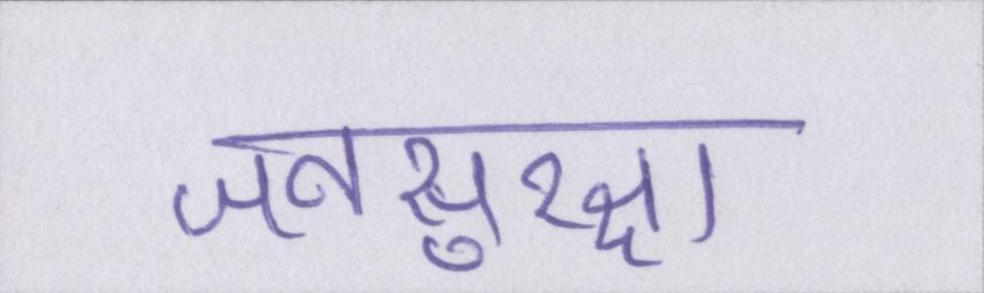 जनसुरक्षा